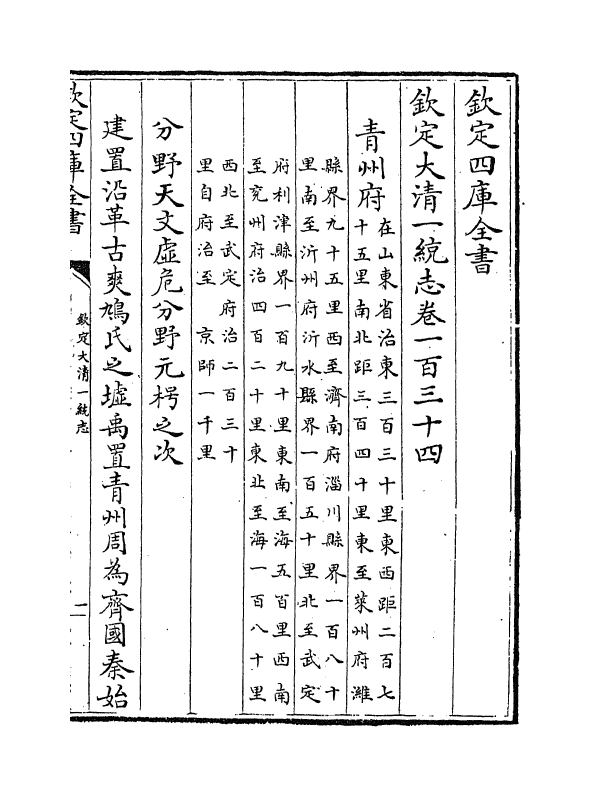 欽定四庫全書
欽定大清一統志卷一百三十四
青州府
在山東省治東三百三十里東西距二百七
十五里南北距三百四十里東至萊州府濰
縣界九十五里西至濟南府淄川縣界一百八十
里南至沂州府沂水縣界一百五十里北至武定
府利津縣界一百九十里東南至海五百里西南
至兖州府治四百二十里東北至海一百八十里
西北至武定府治二百三十
里自府治至 京師一千里
分野天文虚危分野元枵之次
建置沿革古爽鳩氏之墟禹置青州周為齊國秦始
欽定四庫全書
欽定大清一統志